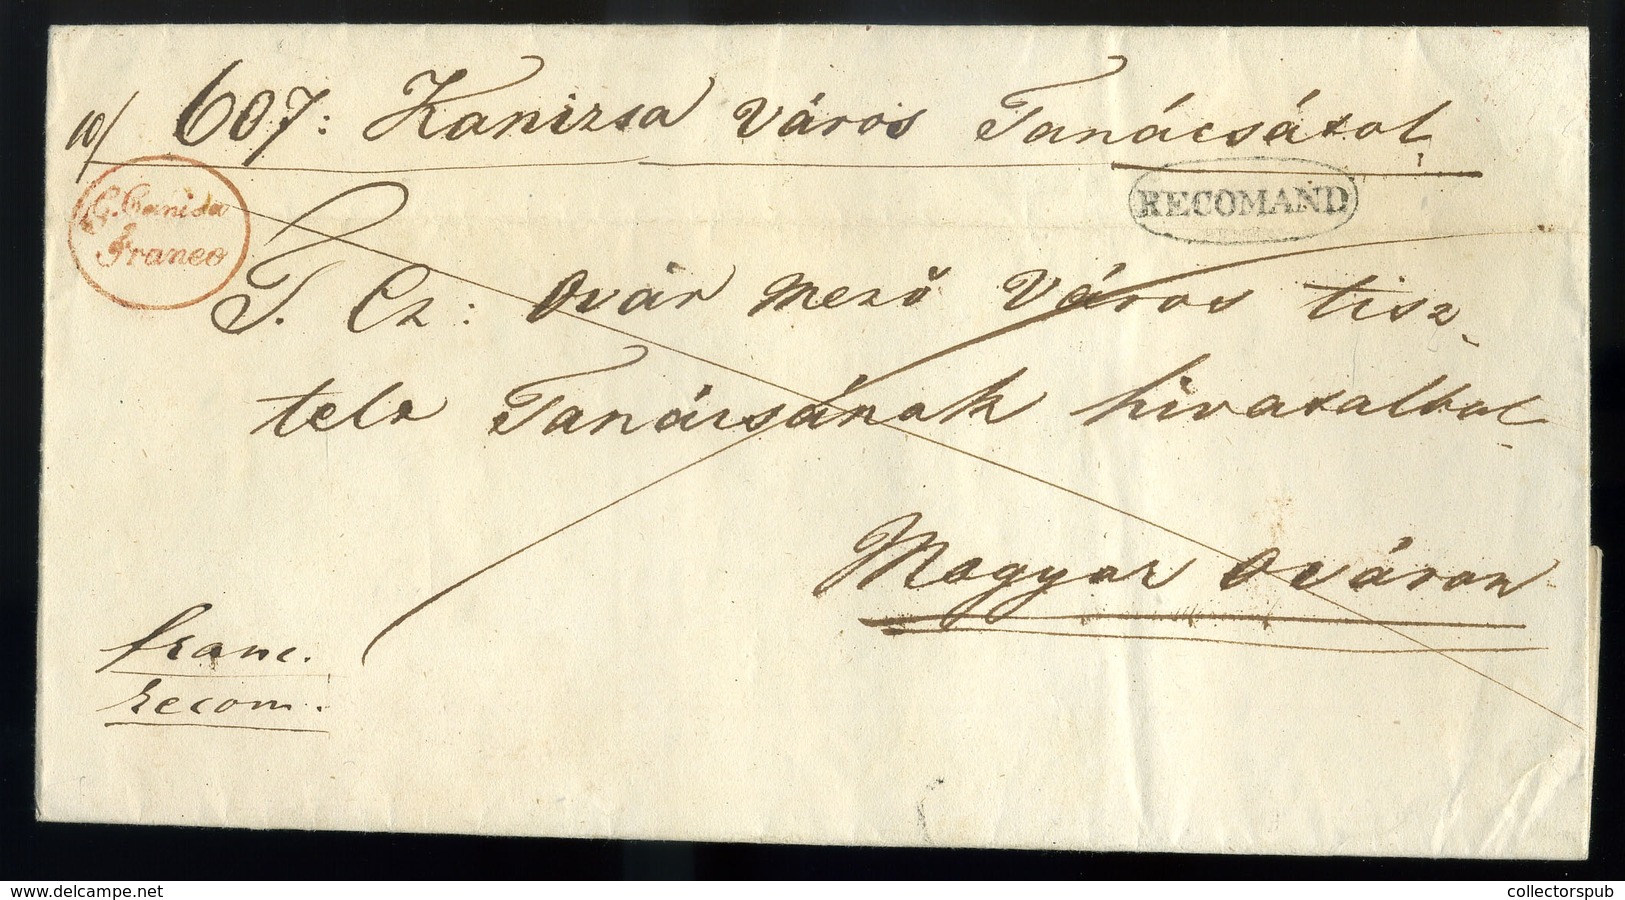 10/ 607: Kanizsa város Tanácsátol.
G. Canisa
Franco
RECOMAND
T. Cz: Ovár mező Város tisz-
telt Tanácsának hivatalbol
Magyar Ováron
franc.
recom.
delcampe.net
collectorspub